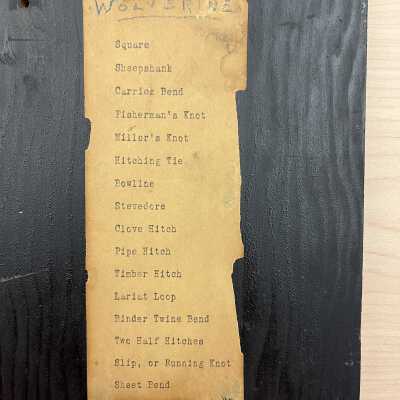 WOLVERINE
Square
Sheepshank
Carrick Bend
Fisherman's Knot
Miller's Knot
Hitching Tie
Bowline
Stevedore
Clove Hitch
Pipe Hitch
Timber Hitch
Lariat Loop
Binder Twine Bend
Two Half Hitches
Slip, or Running Knot
Sheet Bend